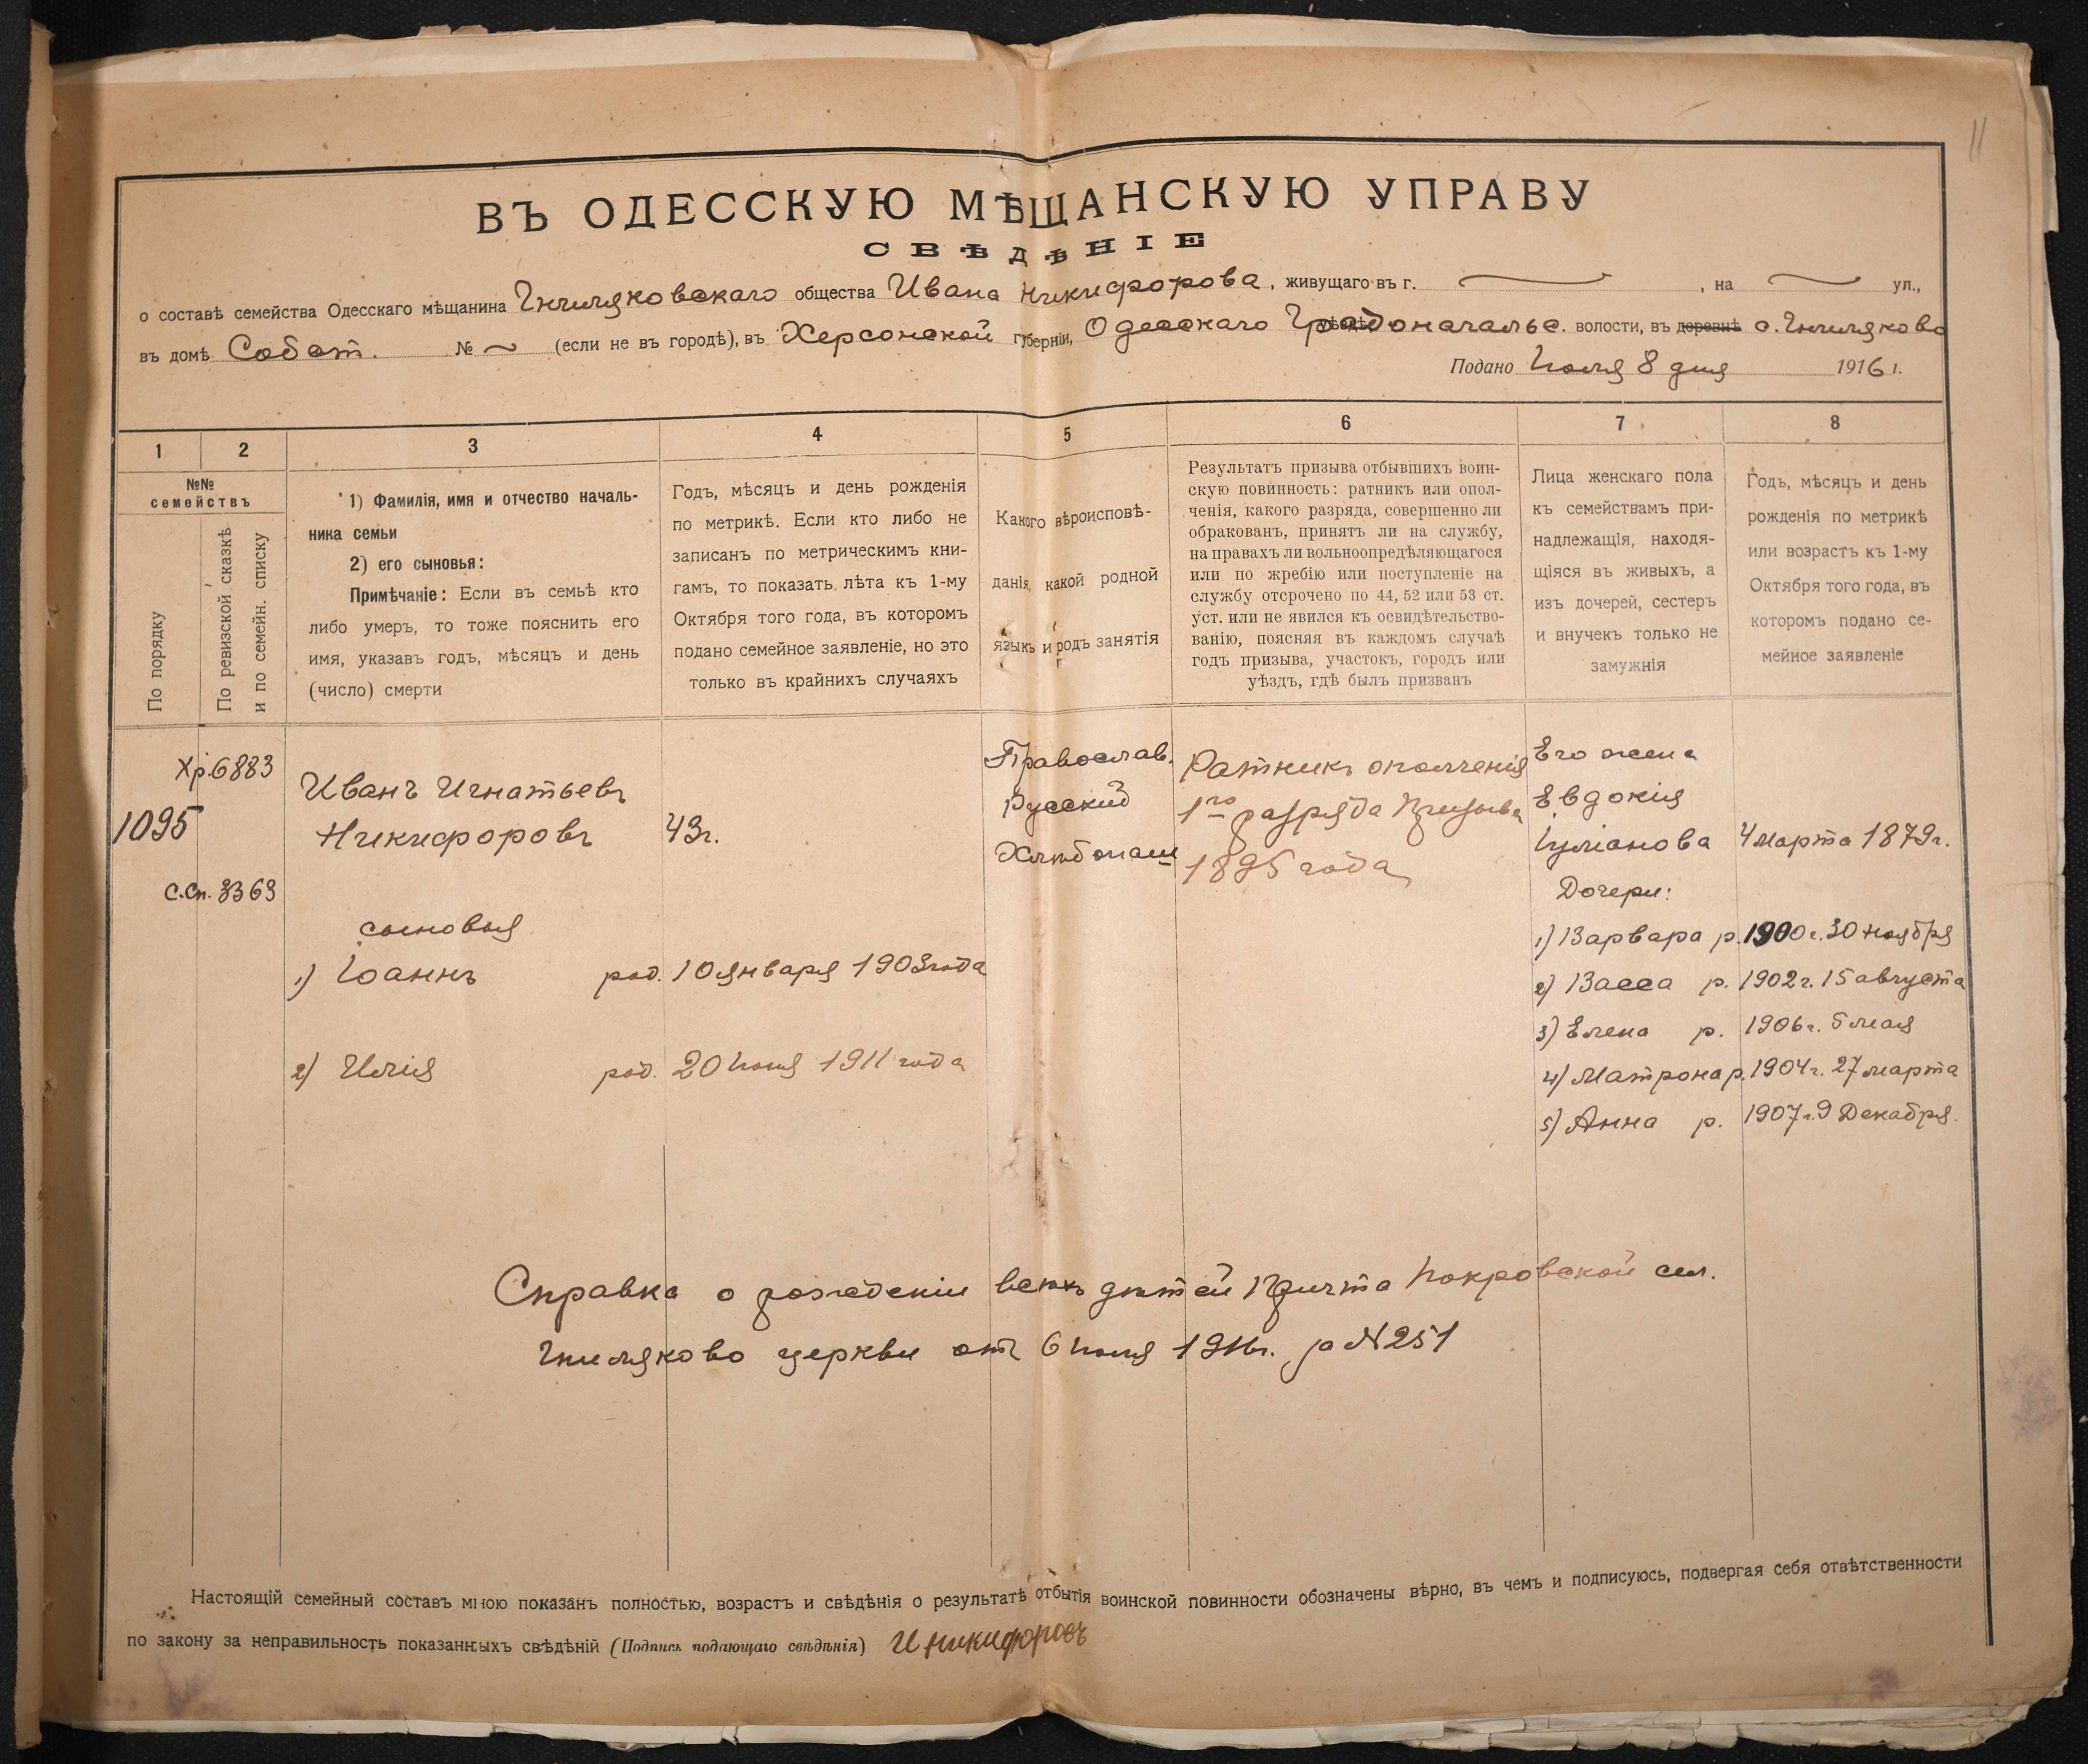 11
ВЪ ОДЕССКУЮ МѢЩАНСКУЮ УПРАВУ
СВѢДѢНІЕ
о составѣ семейства Одесскаго мѣщанина Гниляковскаго общества Ивана Никифорова, живущаго въ г. , на ул.,
въ домѣ Собст. № (если не въ городѣ), въ Херсонской губерніи, Одесскаго Градоначальс. волости, въ деревнѣ с. Гниляково
Подано Июля 8 дня 1916 г.
1 2 3 4 5 6 7 8
№№
семействъ
По порядку
По ревизской сказкѣ
и по семейн. списку
1) Фамилія, имя и отчество началь-
ника семьи
2) его сыновья:
Примѣчаніе: Если въ семьѣ кто
либо умеръ, то тоже пояснить его
имя, указавъ годъ, мѣсяцъ и день
(число) смерти
Годъ, мѣсяцъ и день рожденія
по метрикѣ. Если кто либо не
записанъ по метрическимъ кни-
гамъ, то показать лѣта къ 1-му
Октября того года, въ которомъ
подано семейное заявленіе, но это
только въ крайнихъ случаяхъ
Какого вѣроисповѣ-
данія, какой родной
языкъ и родъ занятія
Результатъ призыва отбывшихъ воин-
скую повинность: ратникъ или опол-
ченія, какого разряда, совершенно ли
обракованъ, принятъ ли на службу,
на правахъ ли вольноопредѣляющагося
или по жребію или поступленіе на
службу отсрочено по 44, 52 или 53 ст.
уст. или не явился къ освидѣтельство-
ванію, поясняя въ каждомъ случаѣ
годъ призыва, участокъ, городъ или
уѣздъ, гдѣ былъ призванъ
Лица женскаго пола
къ семействамъ при-
надлежащія, находя-
щіяся въ живыхъ, а
изъ дочерей, сестеръ
и внучекъ только не
замужнія
Годъ, мѣсяцъ и день
рожденія по метрикѣ
или возрастъ къ 1-му
Октября того года, въ
которомъ подано се-
мейное заявленіе
Хр. 6883
1095
С.Сп. 3363
Иванъ Игнатьевъ
Никифоровъ 43 г.
сыновья
1) Іоаннъ род. 10 Января 1903 года
2) Илія род. 20 Июня 1911 года
Православ.
Русский
Хлѣбопаш
Ратникъ ополченія
1го разряда Призыва
1895 года
Его жена
Евдокія
Іуліанова 4 Марта 1879 г.
Дочери:
1) Варвара р. 1900 г. 30 Ноября
2) Васса р. 1902 г. 15 августа
3) Елена р. 1906 г. 5 мая
4) Матрона р. 1904 г. 27 марта
5) Анна р. 1907 г. 9 Декабря
Справка о рожденіи всѣхъ дѣтей Причта Покровской сел.
Гниляково церкви отъ 6 Июля 1916 г. за № 251
Настоящій семейный составъ мною показанъ полностью, возрастъ и свѣдѣнія о результатѣ отбытія воинской повинности обозначены вѣрно, въ чемъ и подписуюсь, подвергая себя отвѣтственности
по закону за неправильность показанныхъ свѣдѣній (Подпись подающаго свѣдѣнія) И Никифоровъ